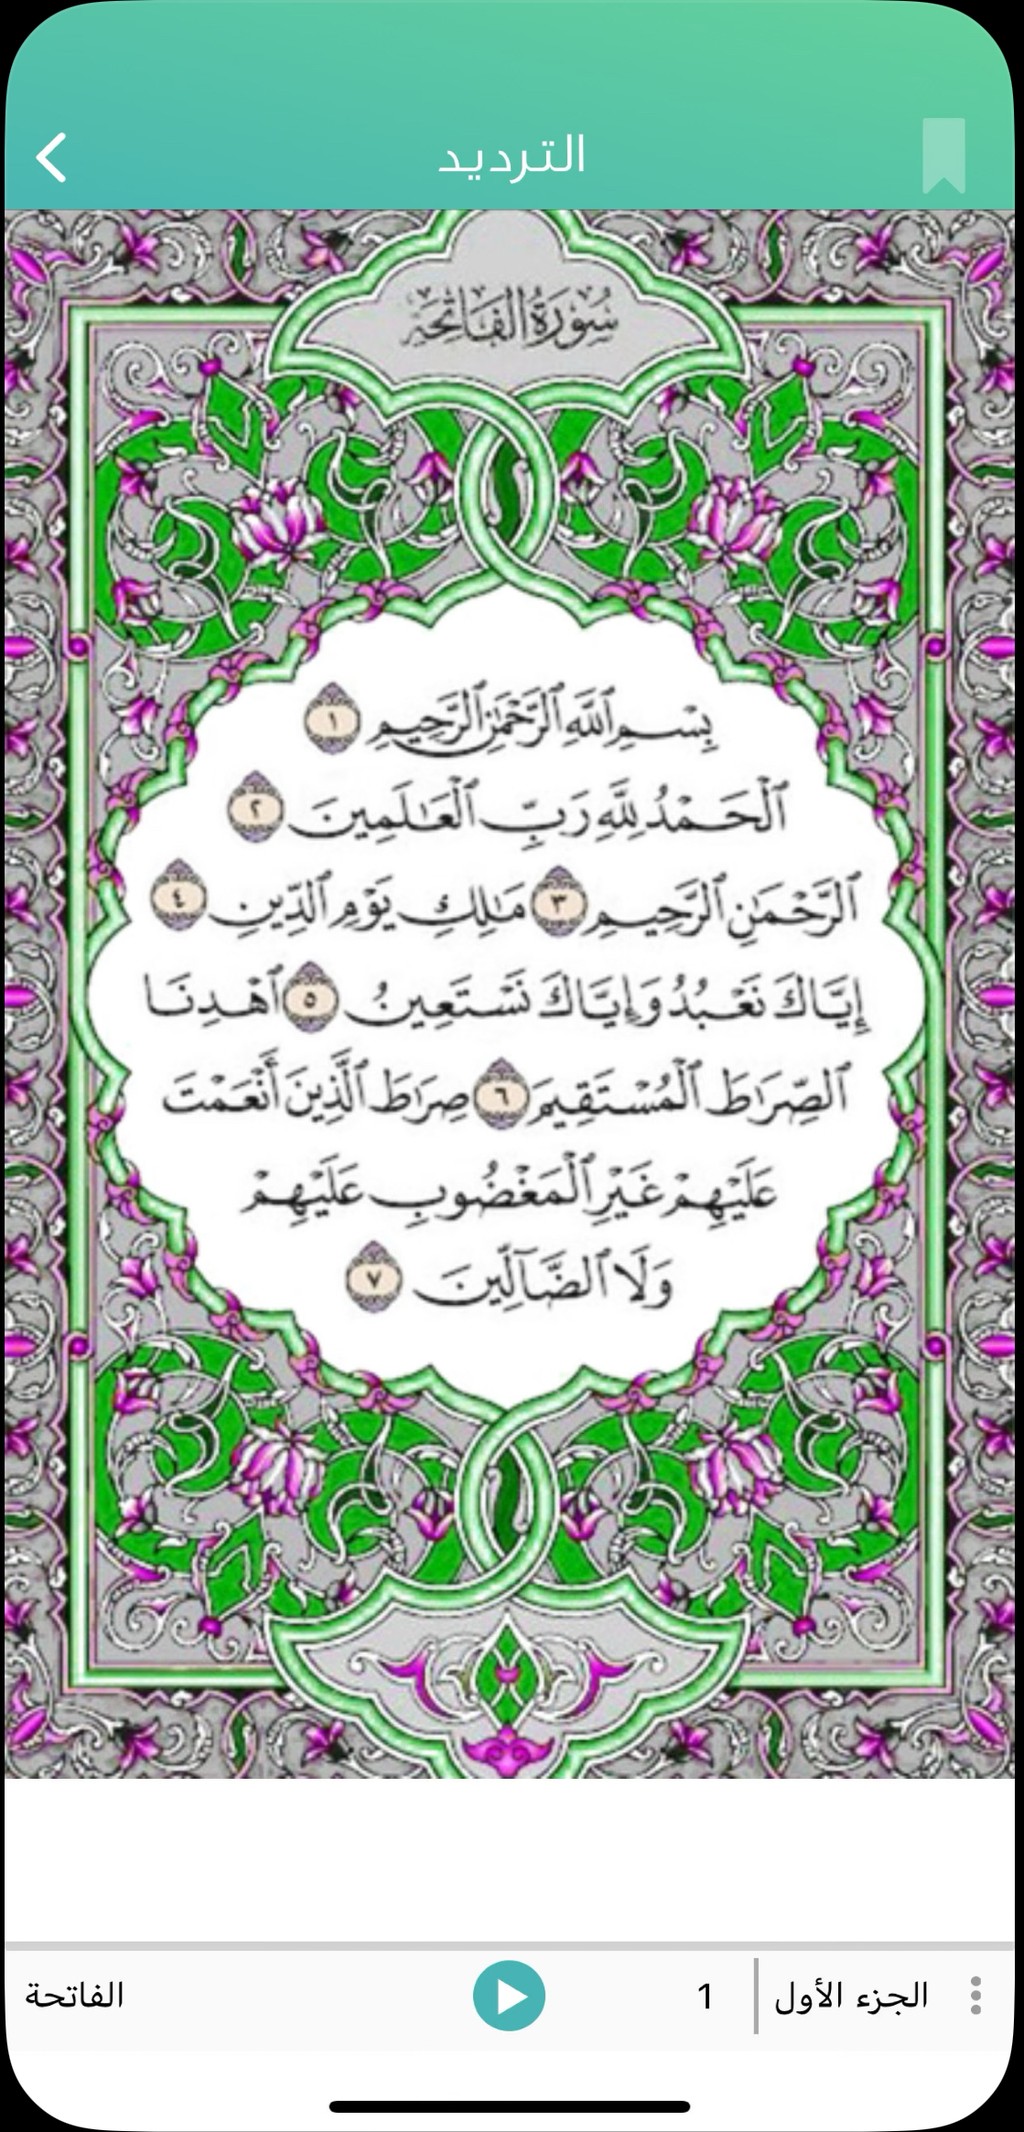 الترديد
سُورَةُ الفَاتِحَةِ
بِسْمِ ٱللَّهِ ٱلرَّحْمَٰنِ ٱلرَّحِيمِ ١
ٱلْحَمْدُ لِلَّهِ رَبِّ ٱلْعَٰلَمِينَ ٢
ٱلرَّحْمَٰنِ ٱلرَّحِيمِ ٣ مَٰلِكِ يَوْمِ ٱلدِّينِ ٤
إِيَّاكَ نَعْبُدُ وَإِيَّاكَ نَسْتَعِينُ ٥ ٱهْدِنَا
ٱلصِّرَٰطَ ٱلْمُسْتَقِيمَ ٦ صِرَٰطَ ٱلَّذِينَ أَنْعَمْتَ
عَلَيْهِمْ غَيْرِ ٱلْمَغْضُوبِ عَلَيْهِمْ
وَلَا ٱلضَّآلِّينَ ٧
الجزء الأول 1 الفاتحة